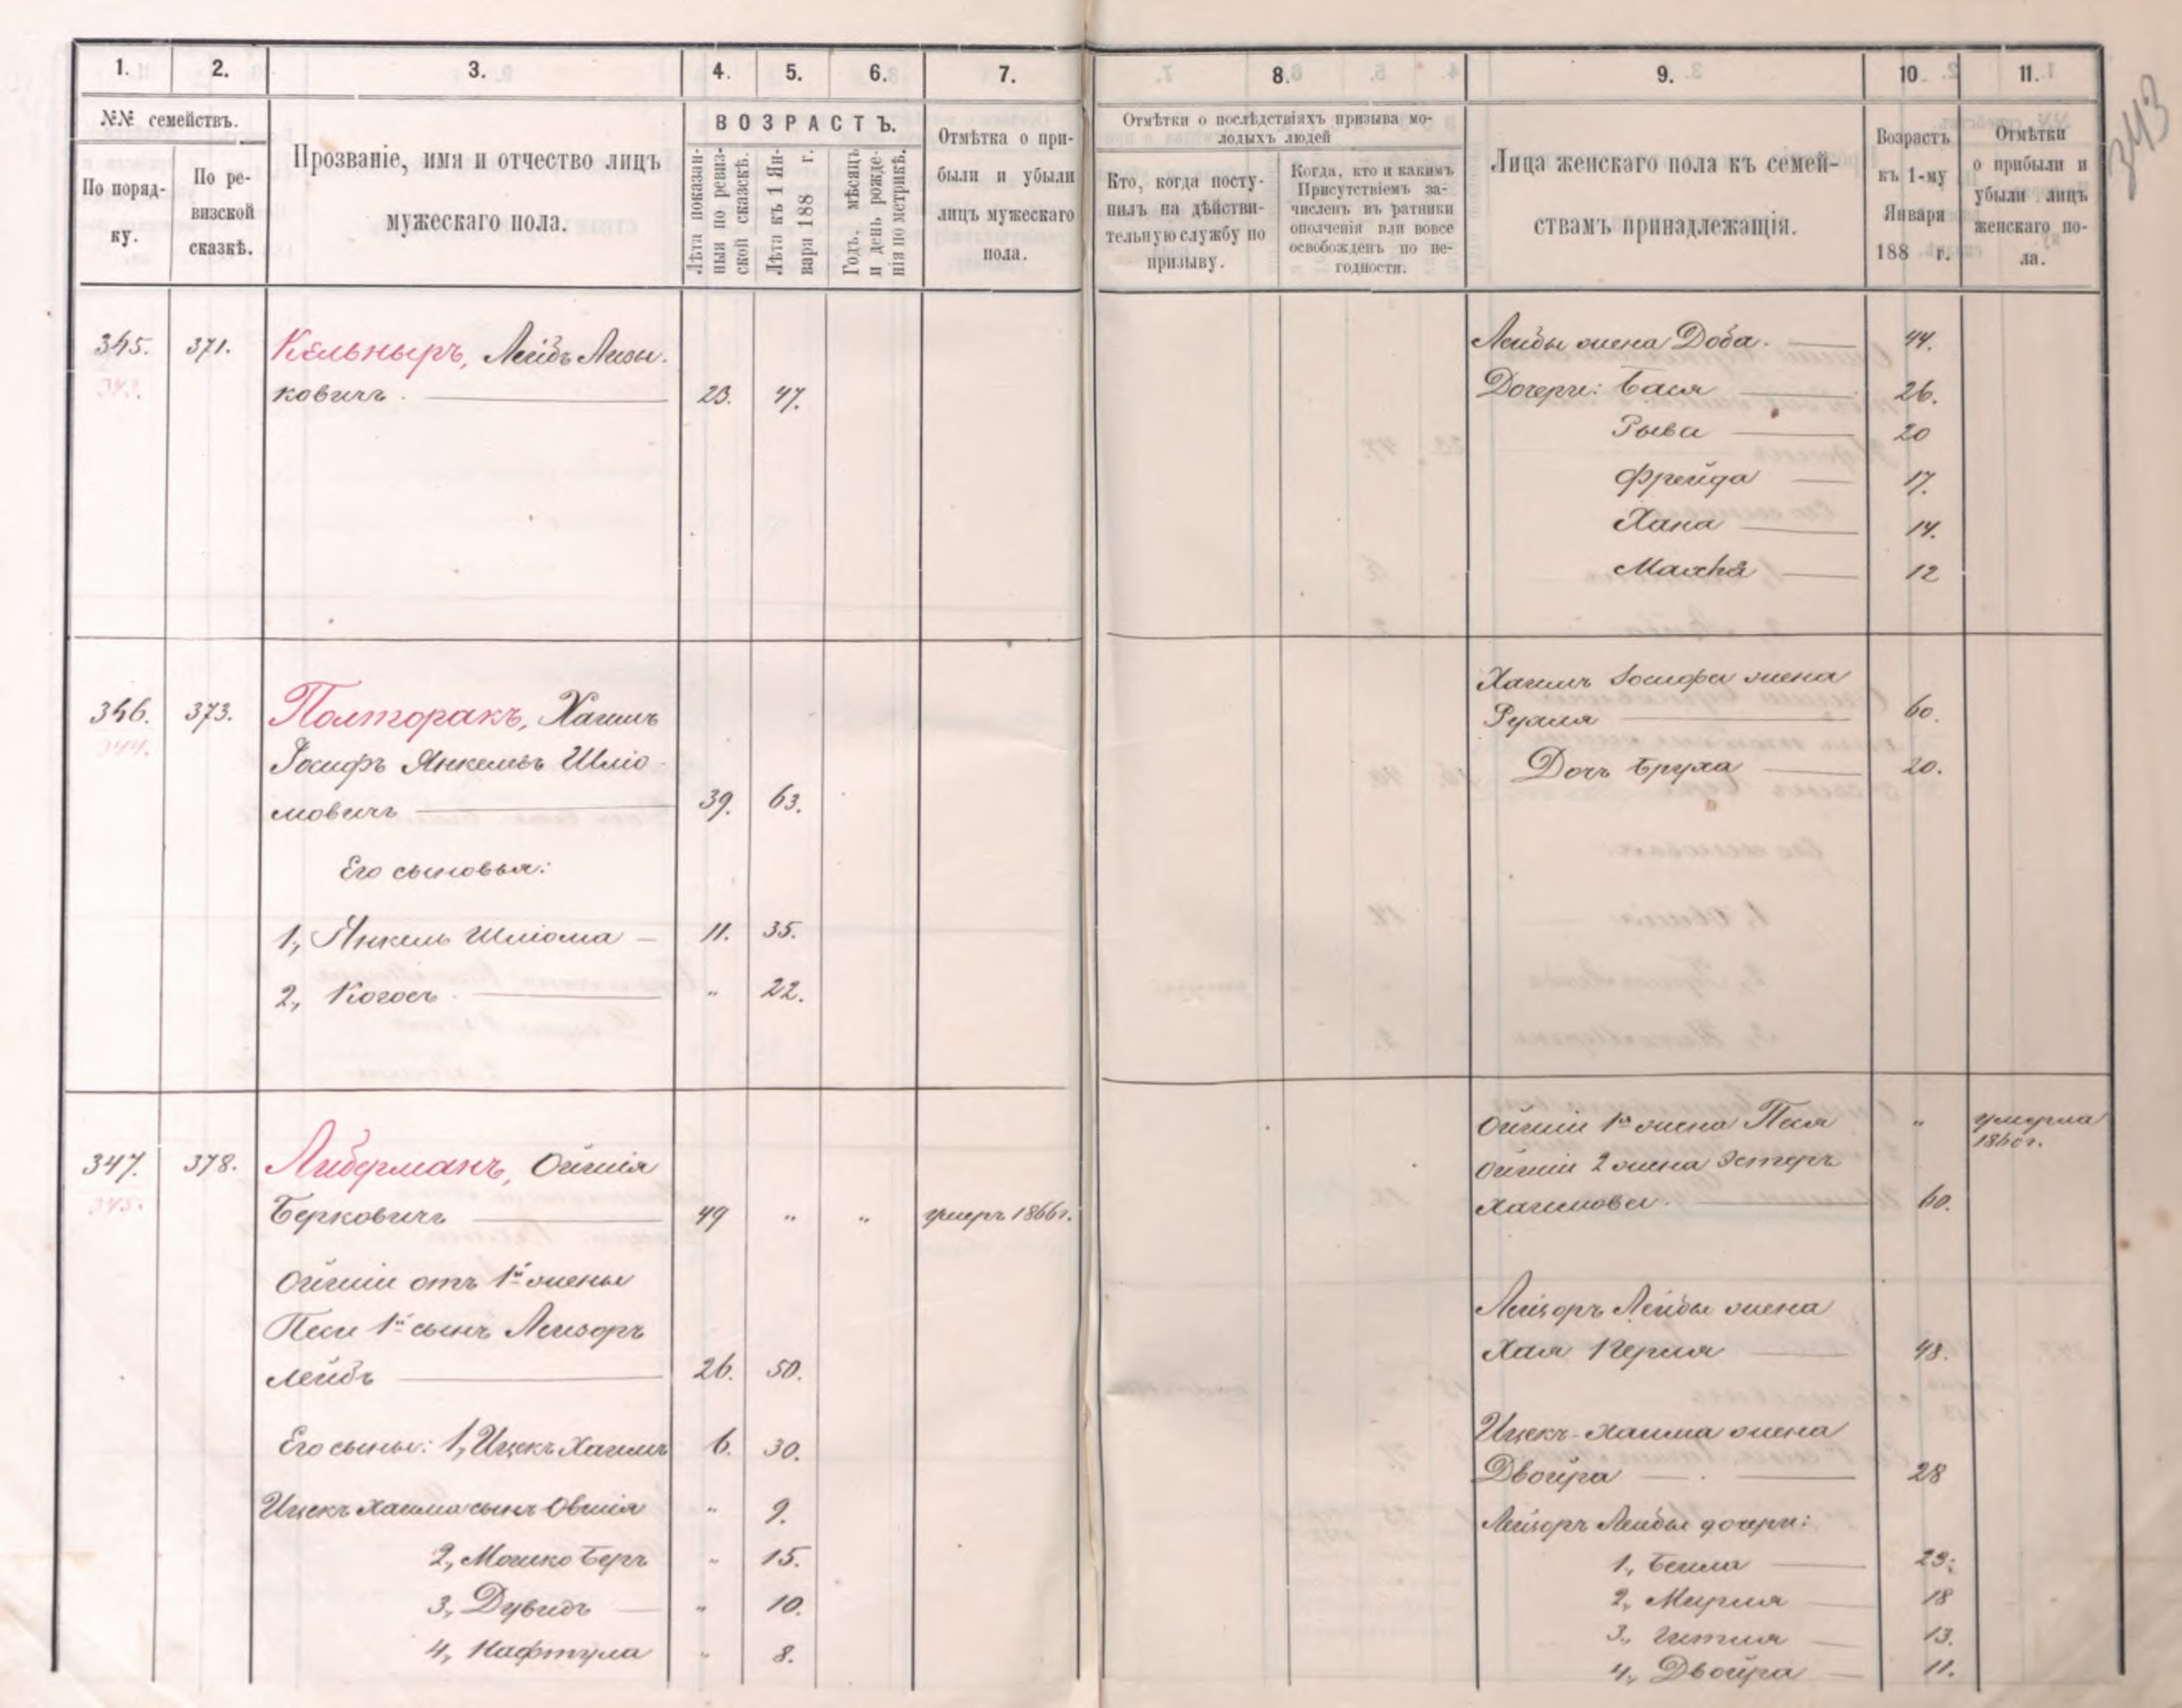 343
1. 2. 3. 4. 5. 6. 7. 8. 9. 10 11.
№№ семействъ.
По поряд-
ку.
По ре-
визской
сказкѣ.
Прозваніе, имя и отчество лицъ
мужескаго пола.
ВОЗРАСТЪ.
Лѣта показан-
ныя по ревиз-
ской сказкѣ.
Лѣта къ 1 Ян-
варя 188 г.
Годъ, мѣсяцъ
и день рожде-
нія по метрикѣ.
Отмѣтка о при-
были и убыли
лицъ мужескаго
пола.
Отмѣтки о послѣдствіяхъ призыва мо-
лодыхъ людей
Кто, когда посту-
пилъ на дѣйстви-
тельную службу по
призыву.
Когда, кто и какимъ
Присутствіемъ за-
численъ въ ратники
ополченія или вовсе
освобожденъ по не-
годности.
Лица женскаго пола къ семей-
ствамъ принадлежащія.
Возрастъ
къ 1-му
Января
188 г.
Отмѣтки
о прибыли и
убыли лицъ
женскаго по-
ла.
345. 371. Кельныръ, Лейбъ
343.
ковичъ. 23. 47.
Лейбы жена Доба. 44.
Дочери: Бася 26.
Рыва 20
Фрейда 17.
Хана 14.
Малка 12
346. 373. Полторакъ, Хаимъ
344.
Іосифъ Янкелевъ Шліо-
мовичъ 39. 63.
Его сыновья:
1, Янкель Шліома 11. 35.
2, Когосъ " 22.
Хаимъ Іосифа жена
Рухля 60.
Дочь Бруха 20.
347. 378. Либерманъ, Ойшія
345.
Берковичъ 49 " " умеръ 1866 г.
Ойшіи отъ 1й жены
Песи 1й сынъ Лейзоръ
Лейбъ 26. 50.
Его сыны: 1, Ицекъ Хаимъ 6. 30.
Ицекъ Хаима сынъ Овшія " 9.
2, Мошко Беръ " 15.
3, Дувидъ " 10.
4, Нафтула " 8.
Ойшіи 1я жена Песя " умерла
1860 г.
Ойшіи 2 жена Эстеръ
Хаимова. 60.
Лейзоръ Лейбы жена
Хая Перля 48.
Ицекъ-Хаима жена
Двойра 28
Лейзоръ Лейбы дочери:
1, Бейла 23.
2, Мирля 18
3, Гитля 13.
4, Двойра 11.